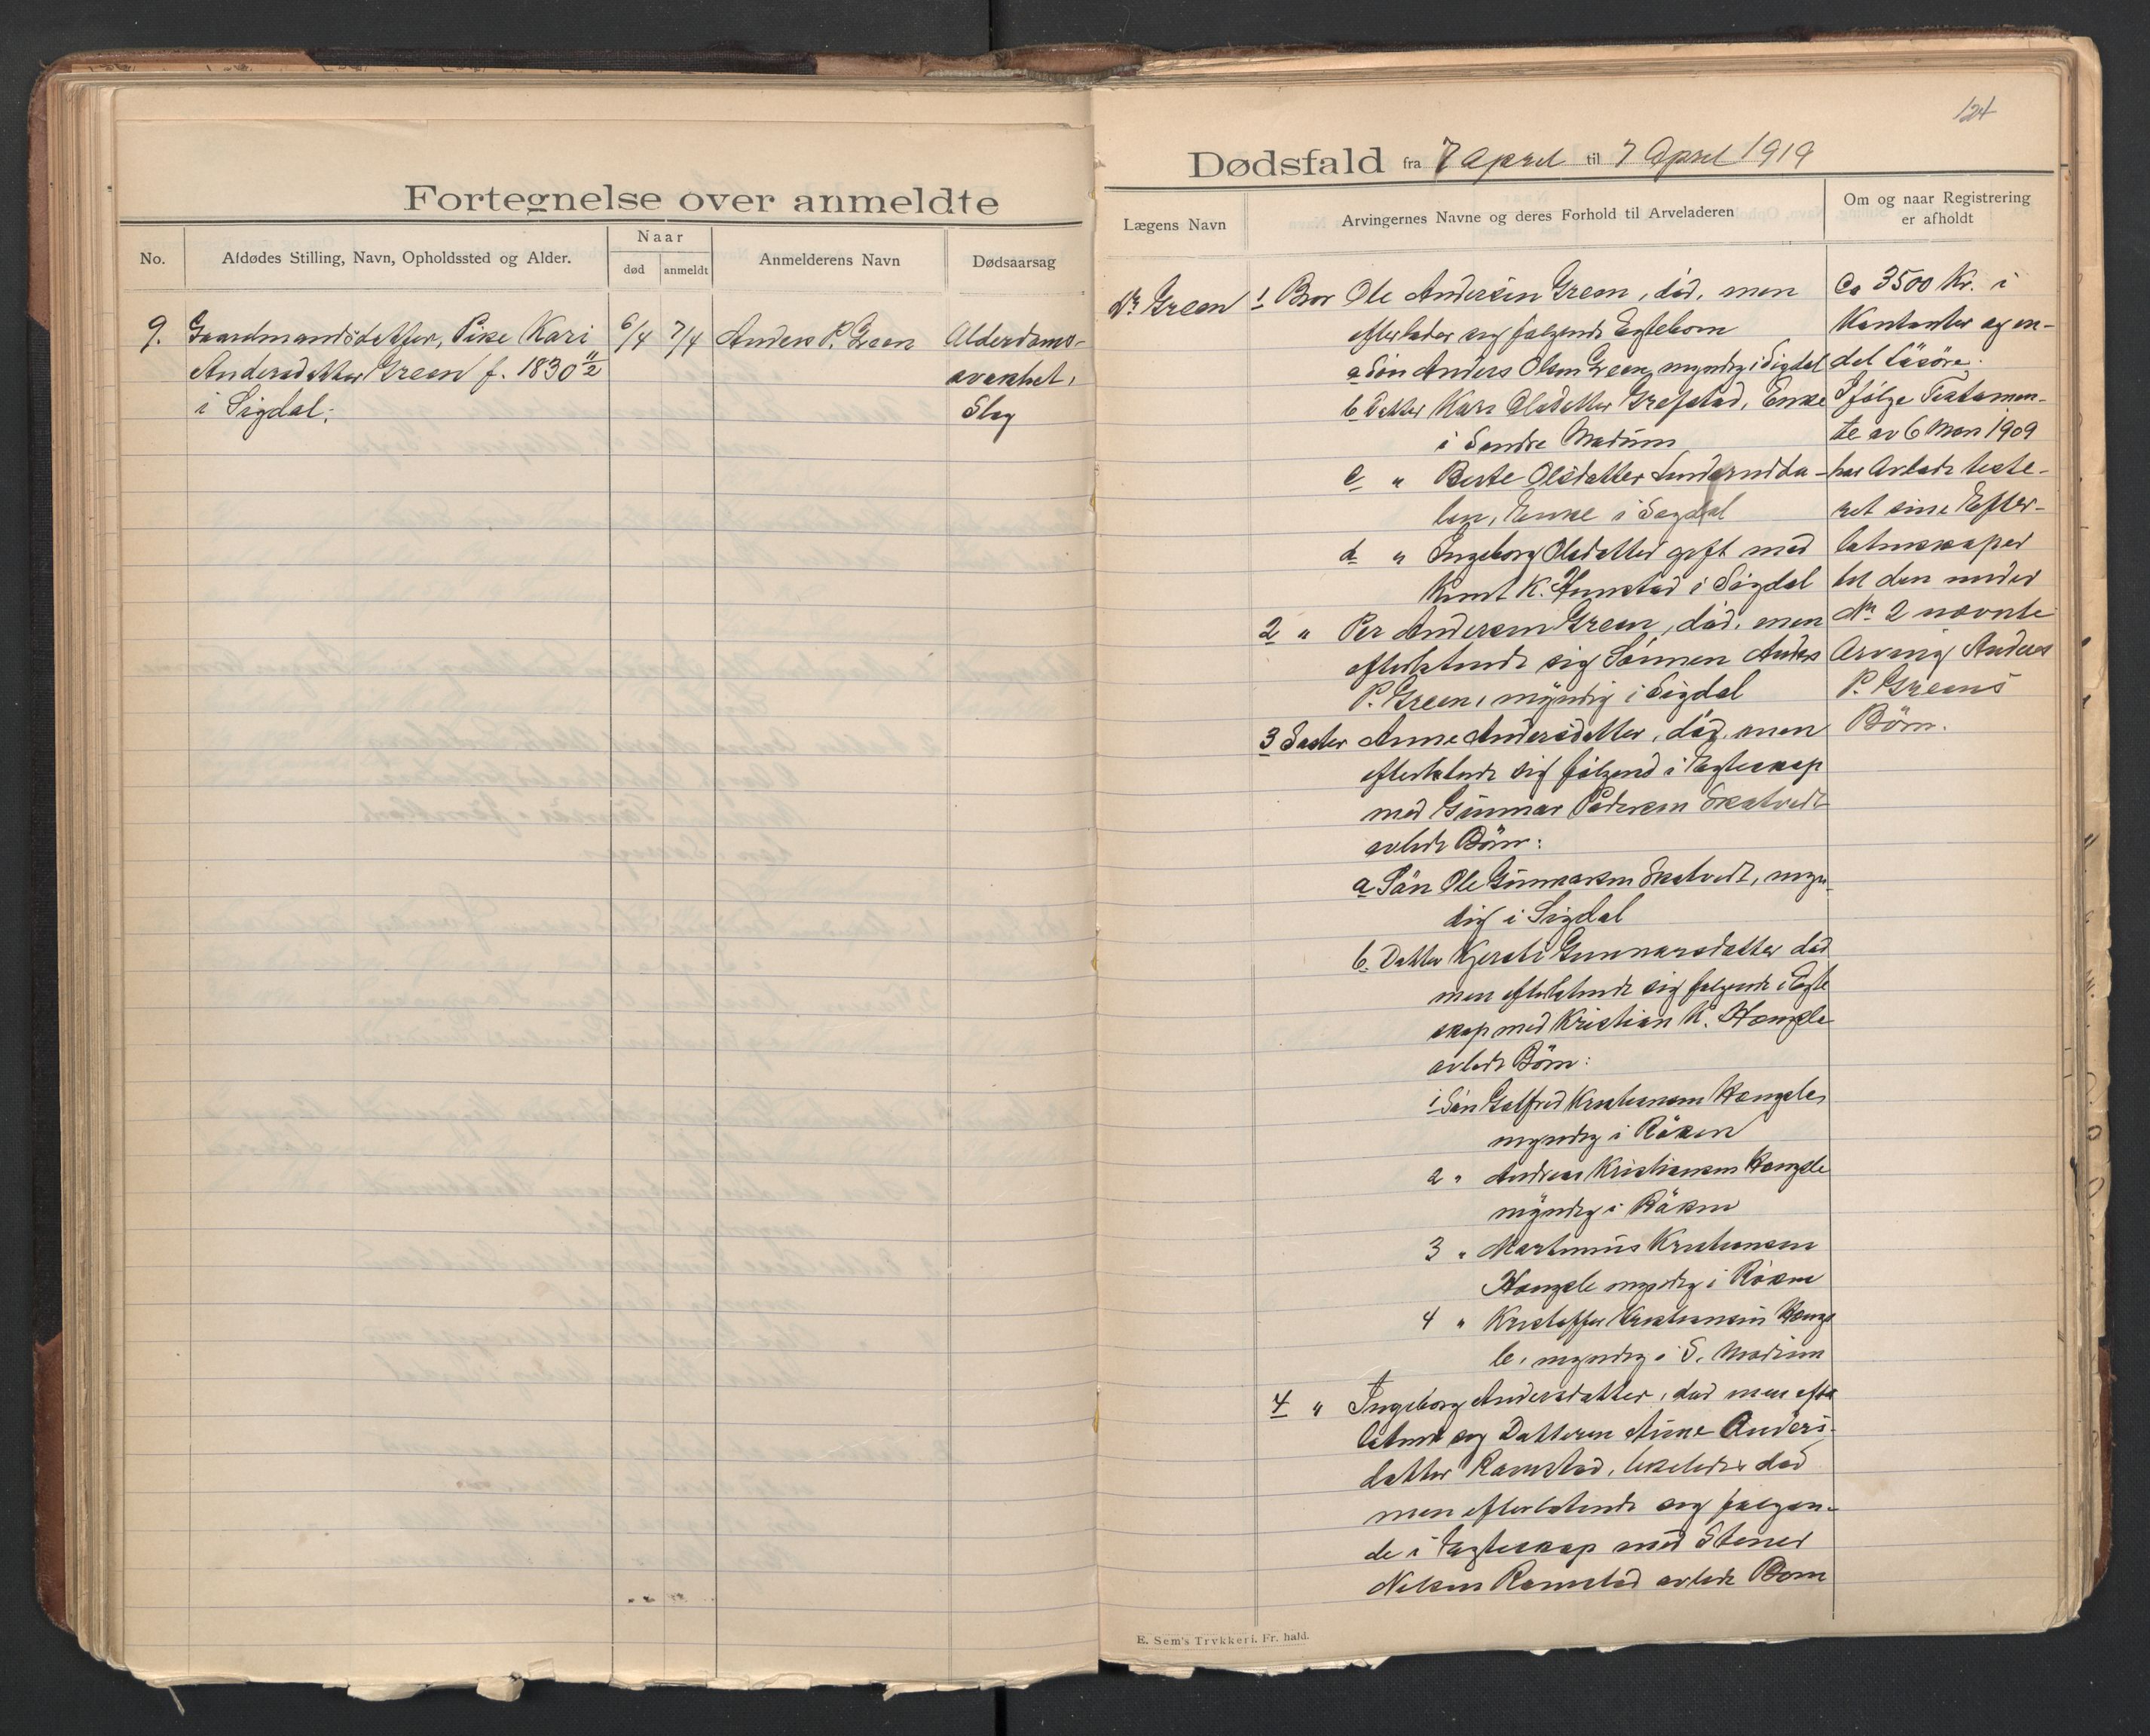 Fortegnelse over anmeldte
No.
Afdødes Stilling, Navn, Opholdssted og Alder.
Naar
død
anmeldt
Anmelderens Navn
Dødsaarsag
9. Gaardmandsdatter, Pike Kari
Andersdatter Green f. 1830 11/2
i Sigdal.
6/4
7/4
Anders P. Green
Alderdoms-
svakhet,
Slag
124
Dødsfald fra 7 April til 7 April 1919
Lægens Navn
Arvingernes Navne og deres Forhold til Arveladeren
Om og naar Registrering
er afholdt
Dr. Green
1 Bror Ole Andersen Green, død, men
efterlader sig følgende Egtebørn
a Søn Anders Olsen Green, myndig i Sigdal
b Datter Kari Olsdatter Grefstad, Enke
i Søndre Modum
c " Berte Olsdatter
len, Enke i Sigdal
d " Ingeborg Olsdatter gift med
Knut K. i Sigdal
2 " Per Andersen Green, død, men
efterlatende sig Sønnen Anders
P. Green, myndig i Sigdal
3 Søster Anne Andersdatter, død, men
efterlatende sig følgend i Egteskap
med Gunnar Pedersen Skatvedt
avlede Børn:
a Søn Ole Gunnarsen Skatvedt, myn-
dig i Sigdal
b. Datter Kjersti Gunnarsdatter død
men efterlatende sig følgende i Egte
skap med Kristian K. Hongsle
avlede Børn:
1 Søn Gotfred Kristiansen Hongsle,
myndig i Røken
2 " Andreas Kristiansen Hongsle
myndig i Røken
3 " Martinius Kristiansen
Hongsle myndig i Røken
4 " Kristoffer Kristiansen Hongs
le, myndig i S. Modum
4 " Ingeborg Andersdatter, død men efter
latende sig Datteren Anne Anders-
datter Ramstad, likeledes død
men efterlatende sig følgen-
de i Egteskap med Stener
Nilsen Ramstad avlede Børn
Ca 3500 Kr. i
Kontanter og en-
del Løsøre.
Ifølge Testamen-
te av 6 1909
har Avdøde teste-
ret sine Efter-
latenskaper
til den under
No. 2 nævnte
Arving Anders
P. Greens
Børn.
E. Sem's Trykkeri. Fr. hald.